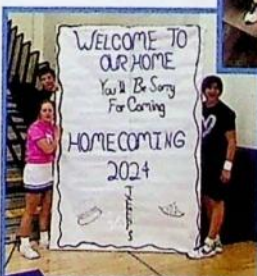 WELCOME TO
OUR HOME
You'll Be Sorry
For Coming
HOMECOMING
2024